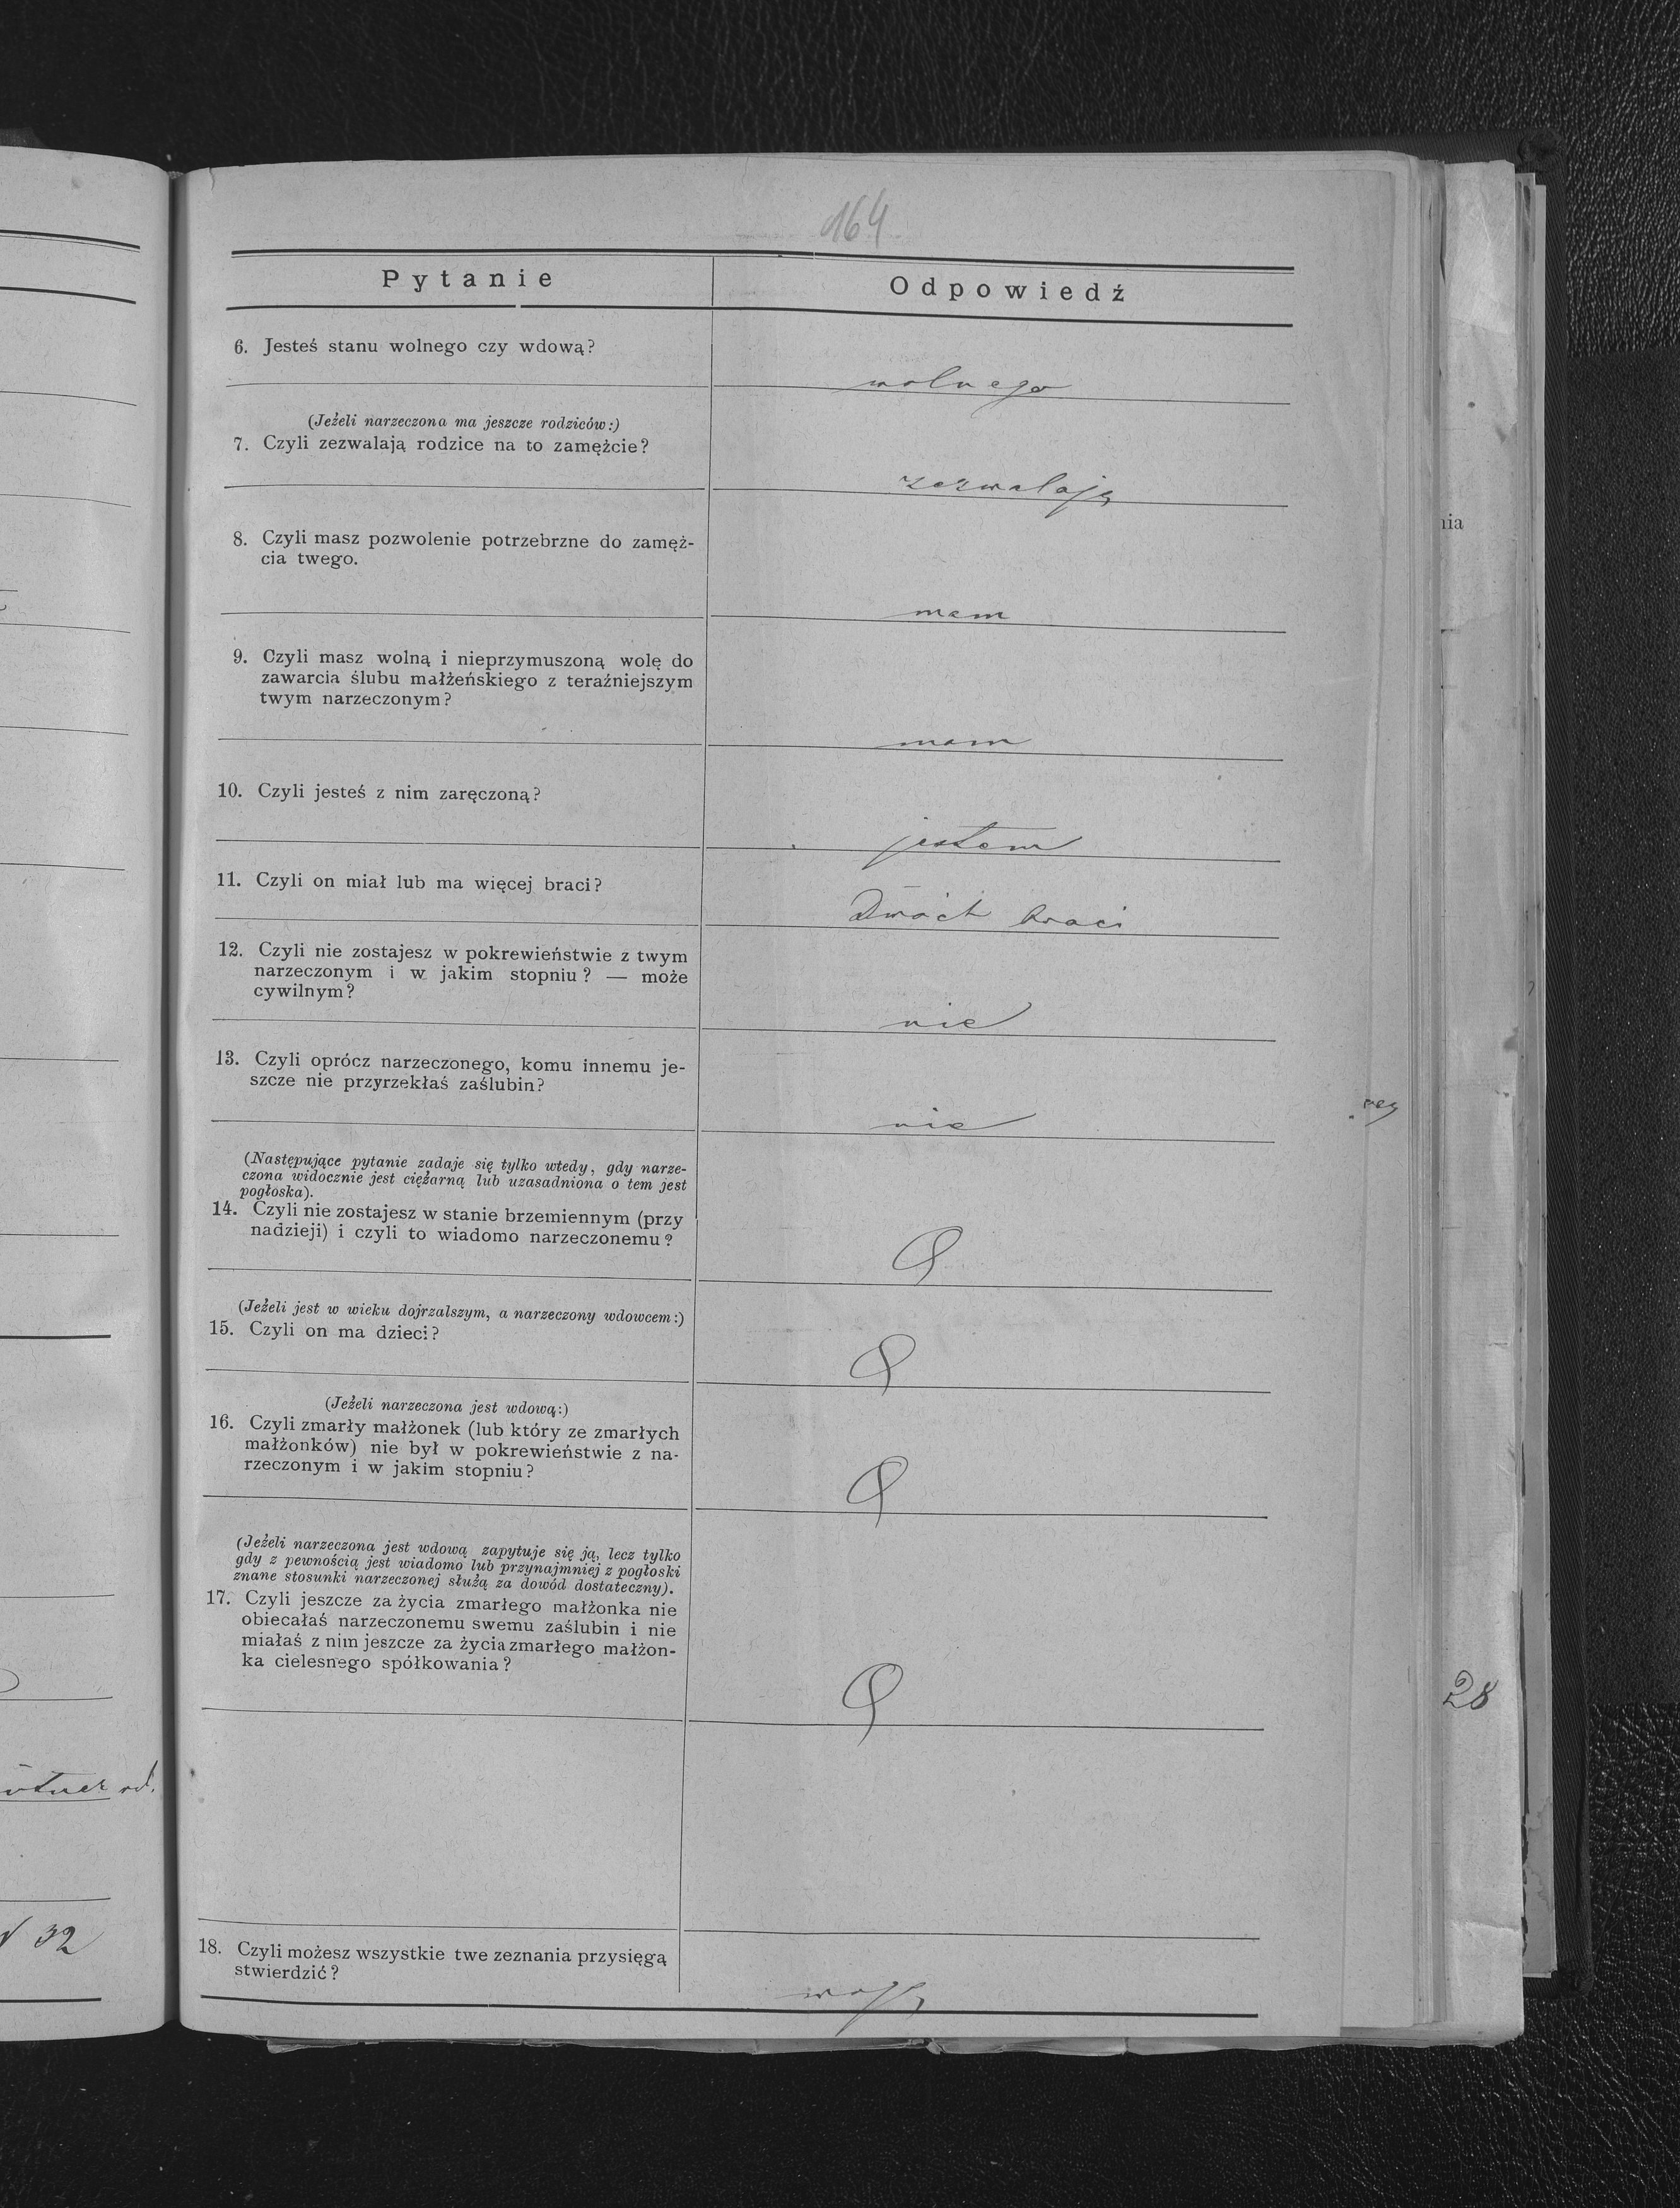 164
Pytanie
Odpowiedź
6. Jesteś stanu wolnego czy wdową?
wolnego
(Jeżeli narzeczona ma jeszcze rodziców:)
7. Czyli zezwalają rodzice na to zamężcie?
zezwalają
8. Czyli masz pozwolenie potrzebrzne do zamęż-
cia twego.
mam
9. Czyli masz wolną i nieprzymuszoną wolę do
zawarcia ślubu małżeńskiego z teraźniejszym
twym narzeczonym?
mam
10. Czyli jesteś z nim zaręczoną?
jestem
11. Czyli on miał lub ma więcej braci?
Dwóch braci
12. Czyli nie zostajesz w pokrewieństwie z twym
narzeczonym i w jakim stopniu? — może
cywilnym?
nie
13. Czyli oprócz narzeczonego, komu innemu je-
szcze nie przyrzekłaś zaślubin?
nie
(Następujące pytanie zadaje się tylko wtedy, gdy narze-
czona widocznie jest ciężarną lub uzasadniona o tem jest
pogłoska).
14. Czyli nie zostajesz w stanie brzemiennym (przy
nadzieji) i czyli to wiadomo narzeczonemu?
(Jeżeli jest w wieku dojrzalszym, a narzeczony wdowcem:)
15. Czyli on ma dzieci?
(Jeżeli narzeczona jest wdową:)
16. Czyli zmarły małżonek (lub który ze zmarłych
małżonków) nie był w pokrewieństwie z na-
rzeczonym i w jakim stopniu?
(Jeżeli narzeczona jest wdową zapytuje się ją, lecz tylko
gdy z pewnością jest wiadomo lub przynajmniej z pogłoski
znane stosunki narzeczonej służą za dowód dostateczny).
17. Czyli jeszcze za życia zmarłego małżonka nie
obiecałaś narzeczonemu swemu zaślubin i nie
miałaś z nim jeszcze za życia zmarłego małżon-
ka cielesnego spółkowania?
18. Czyli możesz wszystkie twe zeznania przysięgą
stwierdzić?
nia
28
32